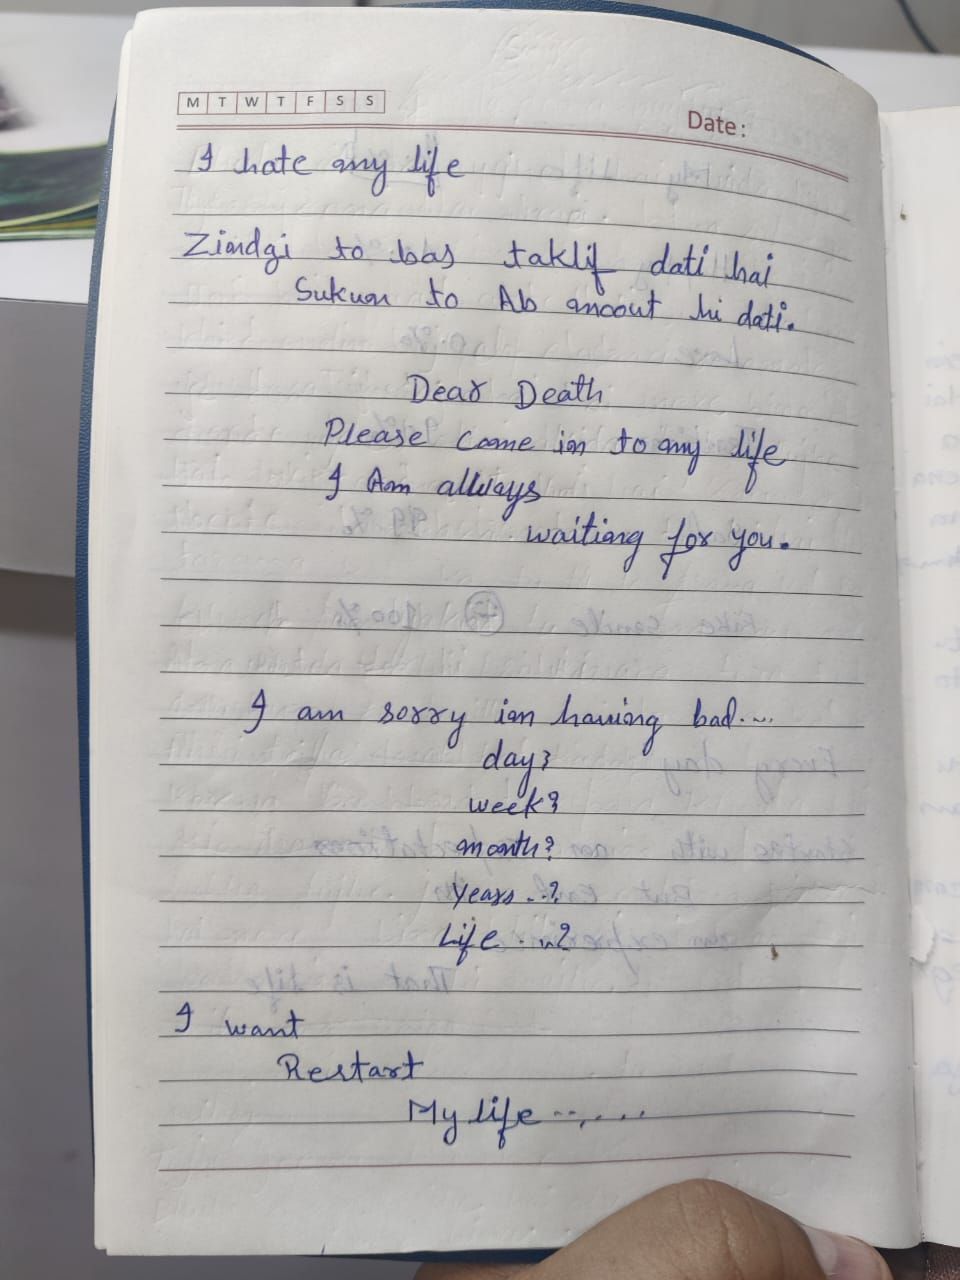 M T W T F S S
Date:
I hate my life
Zindgi to bas taklif dati hai
Sukun to Ab moout hi dati.
Dear Death
Please come in to my life
I Am allways
waiting for you.
I am sorry im having bad....
day?
week?
month?
years..?
Life...?
I want
Restart
My life .......